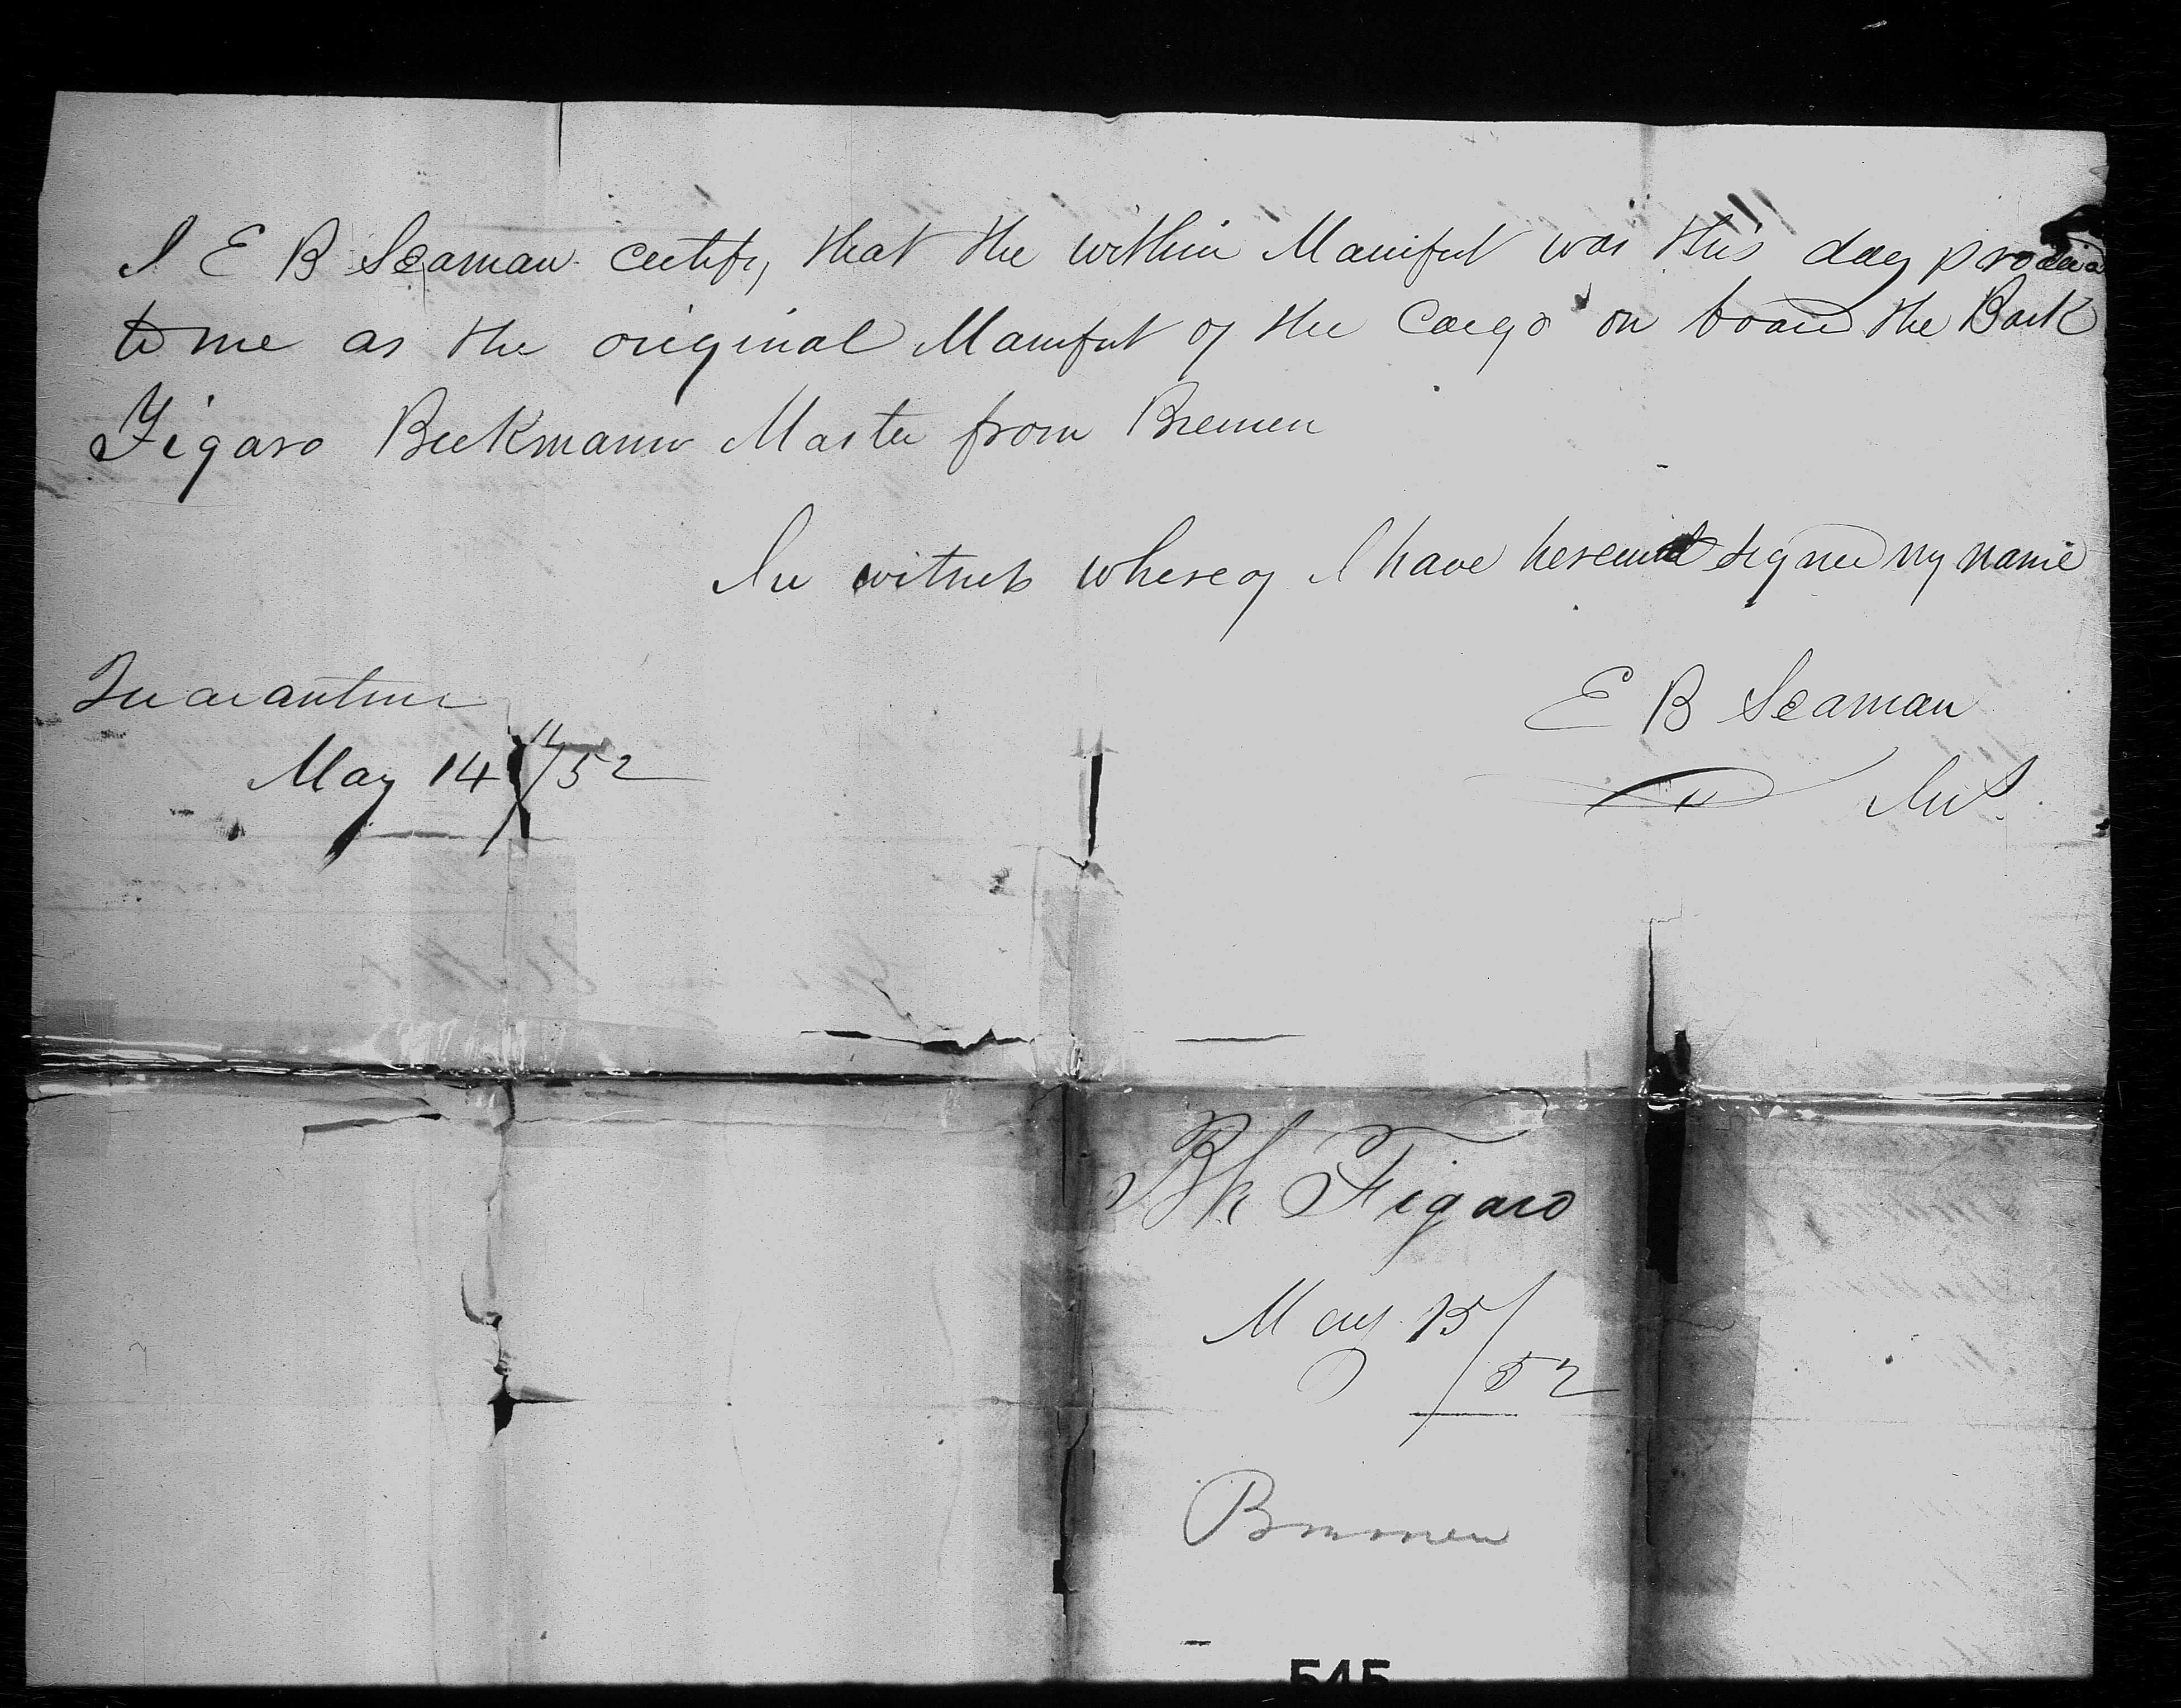 I E B Seaman certify that the within Manifest was this day produced
to me as the original Manifest of the Cargo on board the Bark
Figaro Beekmann Master from Bremen
In witness whereof I have hereunto signed my name
Quarantine
May 14th/52
E B Seaman
Ins.
Bk Figaro
May 15/52
Bremen
545